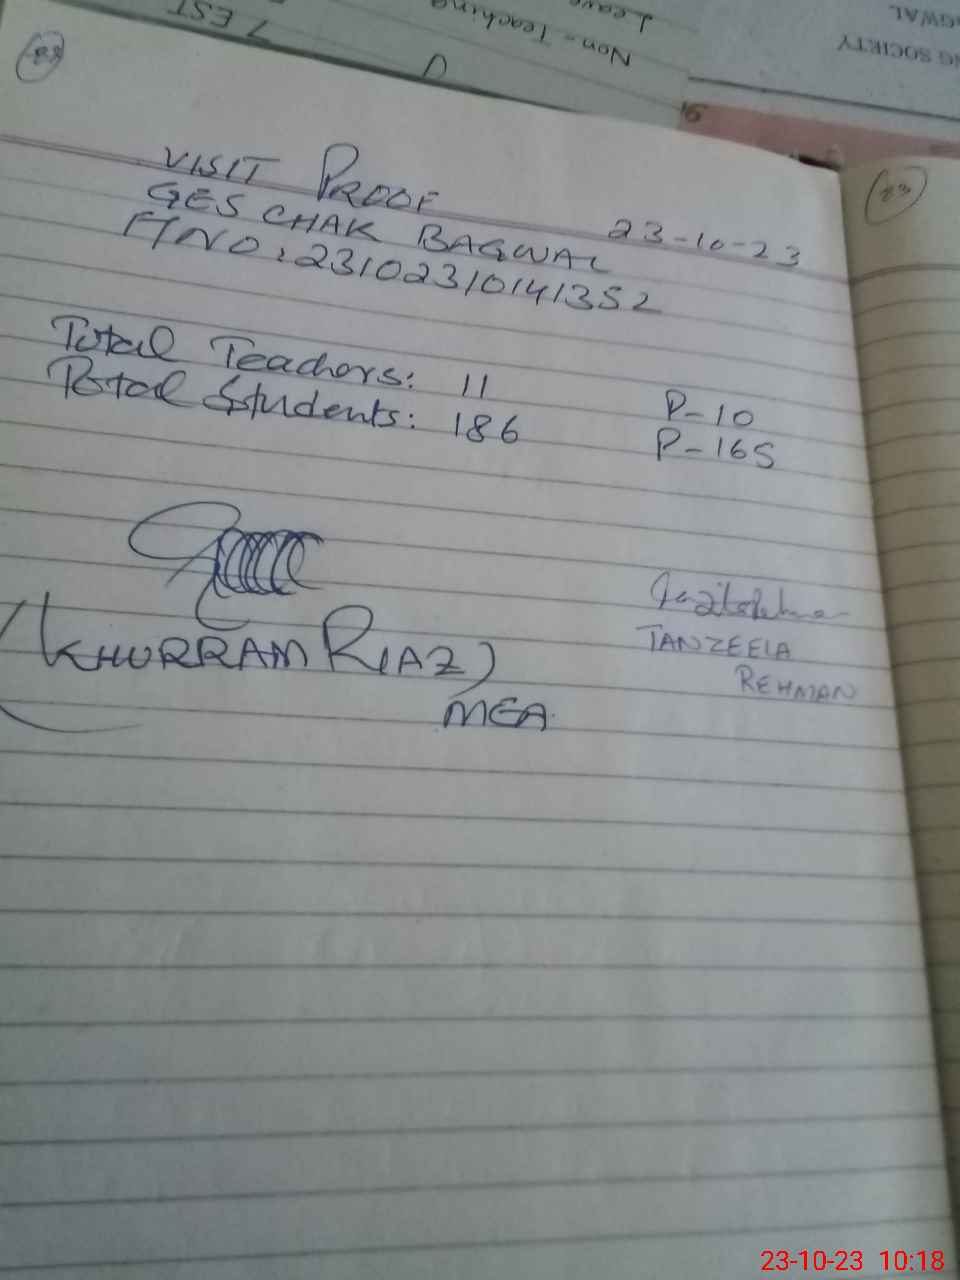 7 EST
Non-Teaching
Leave
NG SOCIETY
GWAL
VISIT PROOF
23-10-23
GES CHAK BAGWAL
FINO:23102310141352
Total Teachers: 11 P-10
Total Students: 186 P-165
(KHURRAM RIAZ)
MEA
TANZEELA
REHMAN
23-10-23 10:18